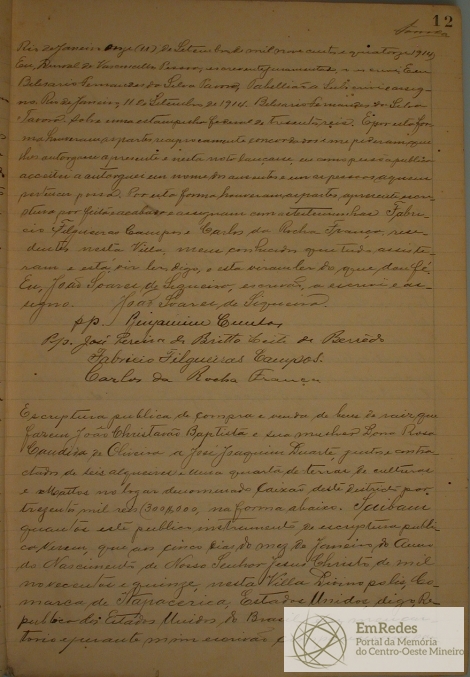 12
Rio de Janeiro onze (11) de Setembro de mil nove centos e quatorze 1914.
Eu, de Vasconcellos Pessoa, escrevente juramentado, o escrevi, E eu
Belisario Fernandes da Silva Tavora, Tabellião a subscrevi e assig-
no. Rio de Janeiro, 11 de Setembro de 1914. Belisario Fernandes da Silva
Tavora. Sobre uma estampilha federal de trezentos reis. E por esta for-
ma houveram as partes
acceitei a outorguei em nome dos ausentes e em as pessoas a quem
pertencer possa. Por esta forma houveram as partes, apresente escri-
ptura por feita e acabada e assignam com as testemunhas Fabri-
cio Filgueiras Campos e Carlos da Rocha França, resi-
dentes nesta Villa, meus conhecidos que tudo assisti-
ram e esta vir ler, digo, e esta viram ler do que dou fé.
Eu, João Soares de Siqueira, escrivão, a escrevi e as-
signo. João Soares de Siqueira.
pp. Benjamim
Pp. José Pereira de Britto Leite de Berrêdo
Fabricio Filgueiras Campos.
Carlos da Rocha França
Escriptura publica de compra e venda de bens de raiz que
fazem João Christavão Baptista e sua mulher Dona Rosa
Candida de Oliveira a José Joaquim Duarte, justo e contra-
ctados de seis alqueires e uma quarta de terras de culturas
e Mattos no logar denominado Caixão deste districto por
trezentos mil reis (300$000, na forma abaixo. Saibam
quantos este publico instrumento de escriptura publi-
ca virem, que aos cinco dias do mez de Janeiro, do Anno
do Nascimento de Nosso Senhor Jesus Christo de mil
novecentos e quinze, nesta Villa Divinopolis, Co-
marca de Itapecerica, Estados Unidos digo, Re-
publica dos Estados Unidos do Brasil
torio e perante mim escrivão
EmRedes
Portal da Memória
do Centro-Oeste Mineiro